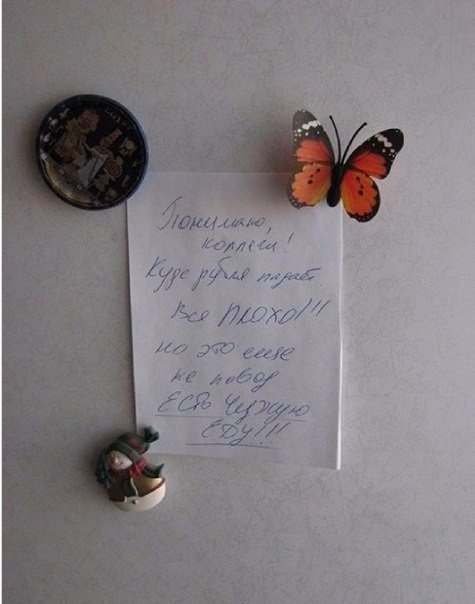 Понимаю,
коллеги!
Курс рубля падает
Все ПЛОХО!!!
но это еще
не повод
ЕСТЬ Чужую
ЕДУ!!!